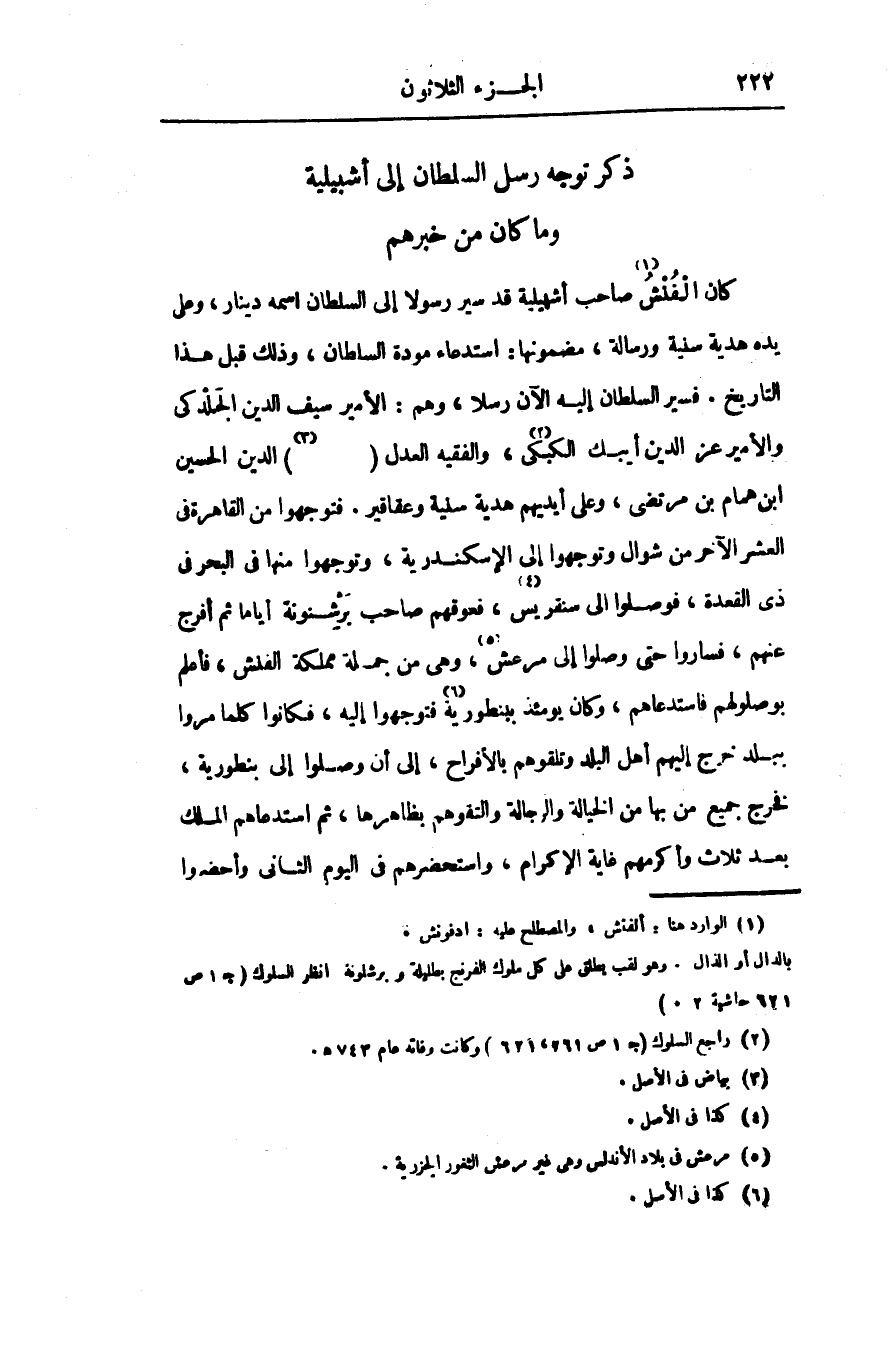 ٢٢٢
الجزء الثلاثون
ذكر توجه رسل السلطان إلى أشبيلية
وما كان من خبرهم
كان الْفُنْشُ (١) صاحب أشبيلية قد سير رسولا إلى السلطان اسمه دينار ، وعلى
يده هدية سنية ورسالة ، مضمونها : استدعاء مودة السلطان ، وذلك قبل هذا
التاريخ . فسير السلطان إليه الآن رسلا ، وهم : الأمير سيف الدين الجَلْدكى
والأمير عز الدين أيبك الكبكى (٢) ، والفقيه العدل ( (٣) ) الدين الحسين
ابن همام بن مرتضى ، وعلى أيديهم هدية سنية وعقاقير . فتوجهوا من القاهرة فى
العشر الآخر من شوال وتوجهوا إلى الإسكندرية ، وتوجهوا منها فى البحر فى
ذى القعدة ، فوصلوا الى سنقريس (٤) ، فعوقهم صاحب بَرْشنونة أياما ثم أفرج
عنهم ، فساروا حتى وصلوا إلى مرعش (٥) ، وهى من جملة مملكة الفنش ، فأعلم
بوصولهم فاستدعاهم ، وكان يومئذ ببنطورية (٦) فتوجهوا إليه ، فكانوا كلما مروا
ببلد خرج إليهم أهل البلد وتلقوهم بالأفراح ، إلى أن وصلوا إلى بنطورية ،
فخرج جميع من بها من الخيالة والرجالة والتقوهم بظاهرها ، ثم استدعاهم الملك
بعد ثلاث وأكرمهم غاية الإكرام ، واستحضرهم فى اليوم الثانى وأحضروا
(١) الوارد هنا : ألفنش ، والمصطلح عليه : ادفونش ،
بالدال أو الذال . وهو لقب يطلق على كل ملوك الفرنج بطليلة و برشلونة انظر السلوك ( جـ ١ ص
٦٢١ حاشية ٢ . )
(٢) راجع السلوك (جـ ١ ص ٣٦١ ، ٦٢١ ) وكانت وفاته عام ٧٤٣ هـ .
(٣) بياض فى الأصل .
(٤) كذا فى الأصل .
(٥) مرعش فى بلاد الأندلس وهى غير مرعش الثغور الجزرية .
(٦) كذا فى الأصل .